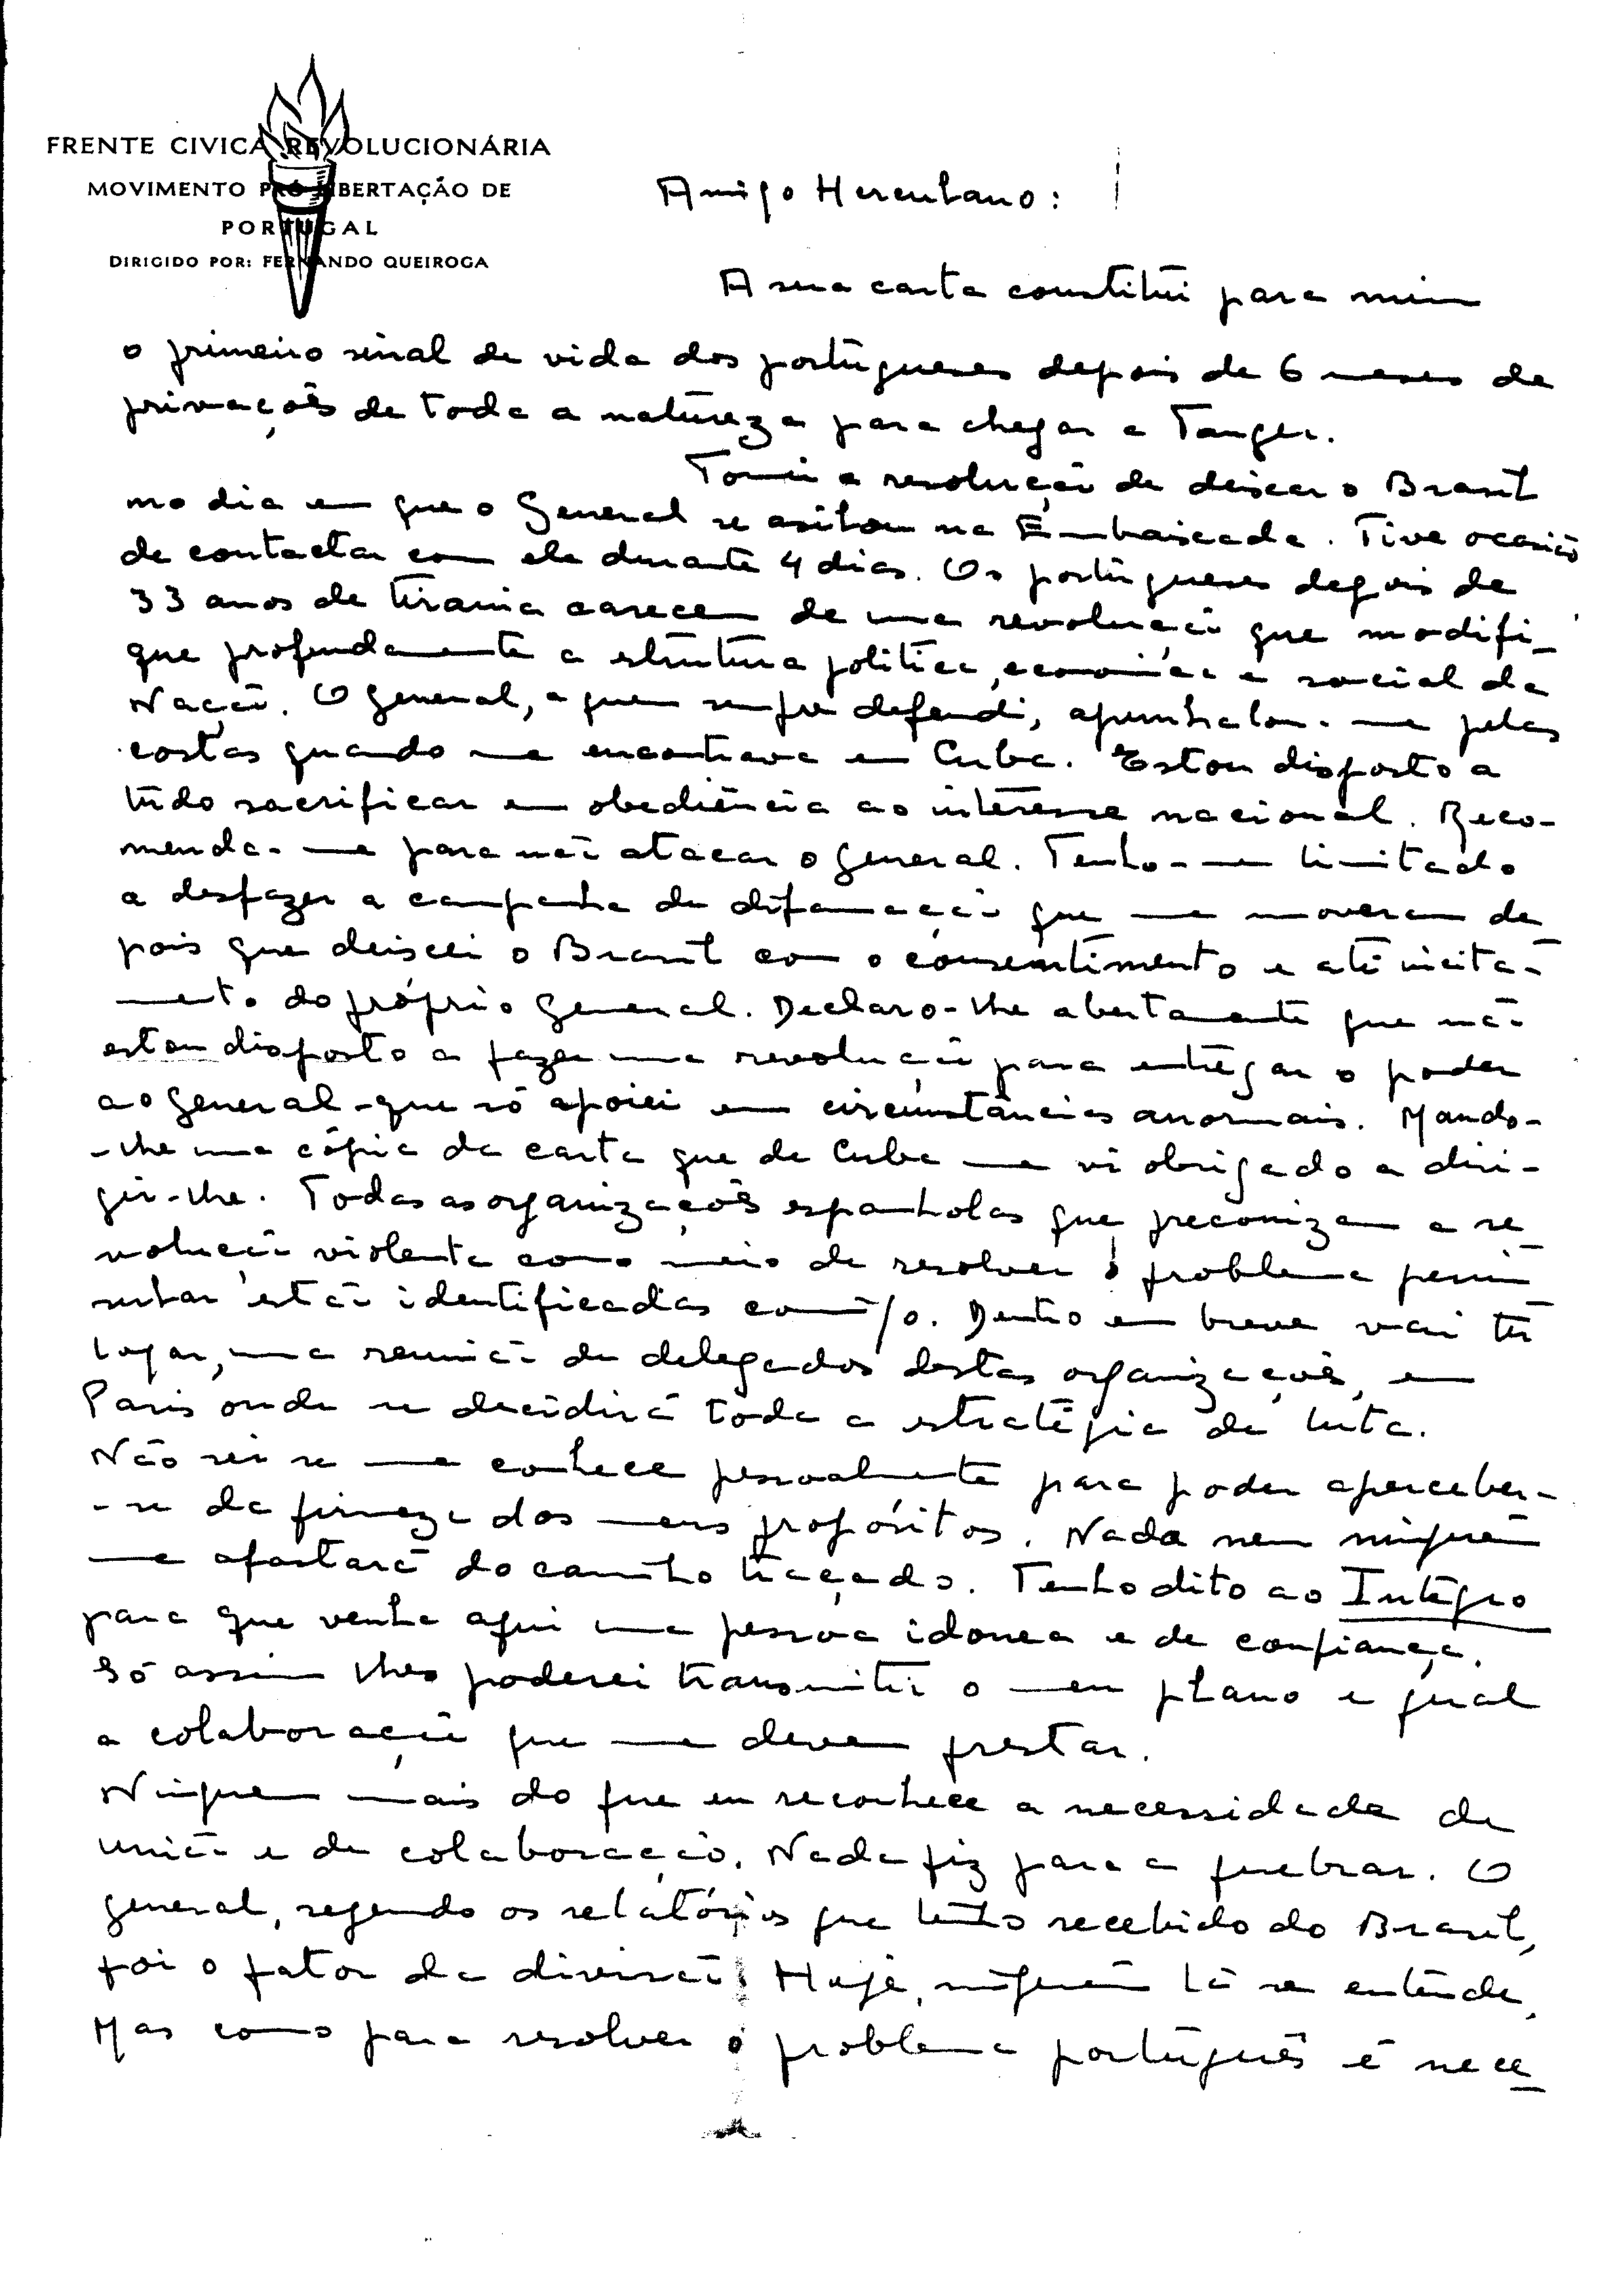 FRENTE CIVICA REVOLUCIONÁRIA
MOVIMENTO PRÓ LIBERTAÇÃO DE
PORTUGAL
DIRIGIDO POR: FERNANDO QUEIROGA
Amigo Herculano:
A sua carta constitui para mim
o primeiro sinal de vida dos portugueses depois de 6 meses de
privações de toda a natureza para chegar a Tanger.
Tomei a resolução de deixar o Brasil
no dia em que o General se asilou na Embaixada. Tive ocasião
de contactar com ele durante 4 dias. Os portugueses depois de
33 anos de tirania carecem de uma revolução que modifi_
que profundamente a estrutura politica, economica e social da
Nação. O general, a quem sempre defendi, apunhalou-me pelas
costas quando me encontrava em Cuba. Estou disposto a
tudo sacrificar em obediência ao interesse nacional. Reco-
menda-me para não atacar o general. Tenho-me limitado
a desfazer a campanha de difamação que me moveram de_
pois que deixei o Brasil com o consentimento e até incita-
mento do próprio General. Declaro-lhe abertamente que não
estou disposto a fazer uma revolução para entregar o poder
ao General-que só apoiei em circunstâncias anormais. Mando-
-lhe uma cópia da carta que de Cuba me vi obrigado a diri-
gir-lhe. Todas as organizações espanholas que preconizam a re_
volução violenta como meio de resolver o problema penin_
sular estão identificadas comigo. Dentro em breve vai ter
lugar, uma reunião de delegados destas organizações, em
Paris onde se decidirá toda a estratégia da luta.
Não sei se me conhece pessoalmente para poder aperceber-
-se da firmeza dos meus propósitos. Nada nem ninguém
me afastará do caminho traçado. Tenho dito ao Integro
para que venha aqui uma pessoa idonea e de confiança.
Só assim lhes poderei transmitir o meu plano e qual
a colaboração que me devem prestar.
Ninguem mais do que eu reconhece a necessidade de
união e de colaboração. Nada fiz para a quebrar. O
general, segundo os relatórios que tenho recebido do Brasil,
foi o fator da divisão. Hoje, ninguém lá se entende.
Mas como para resolver o problema português é nece_